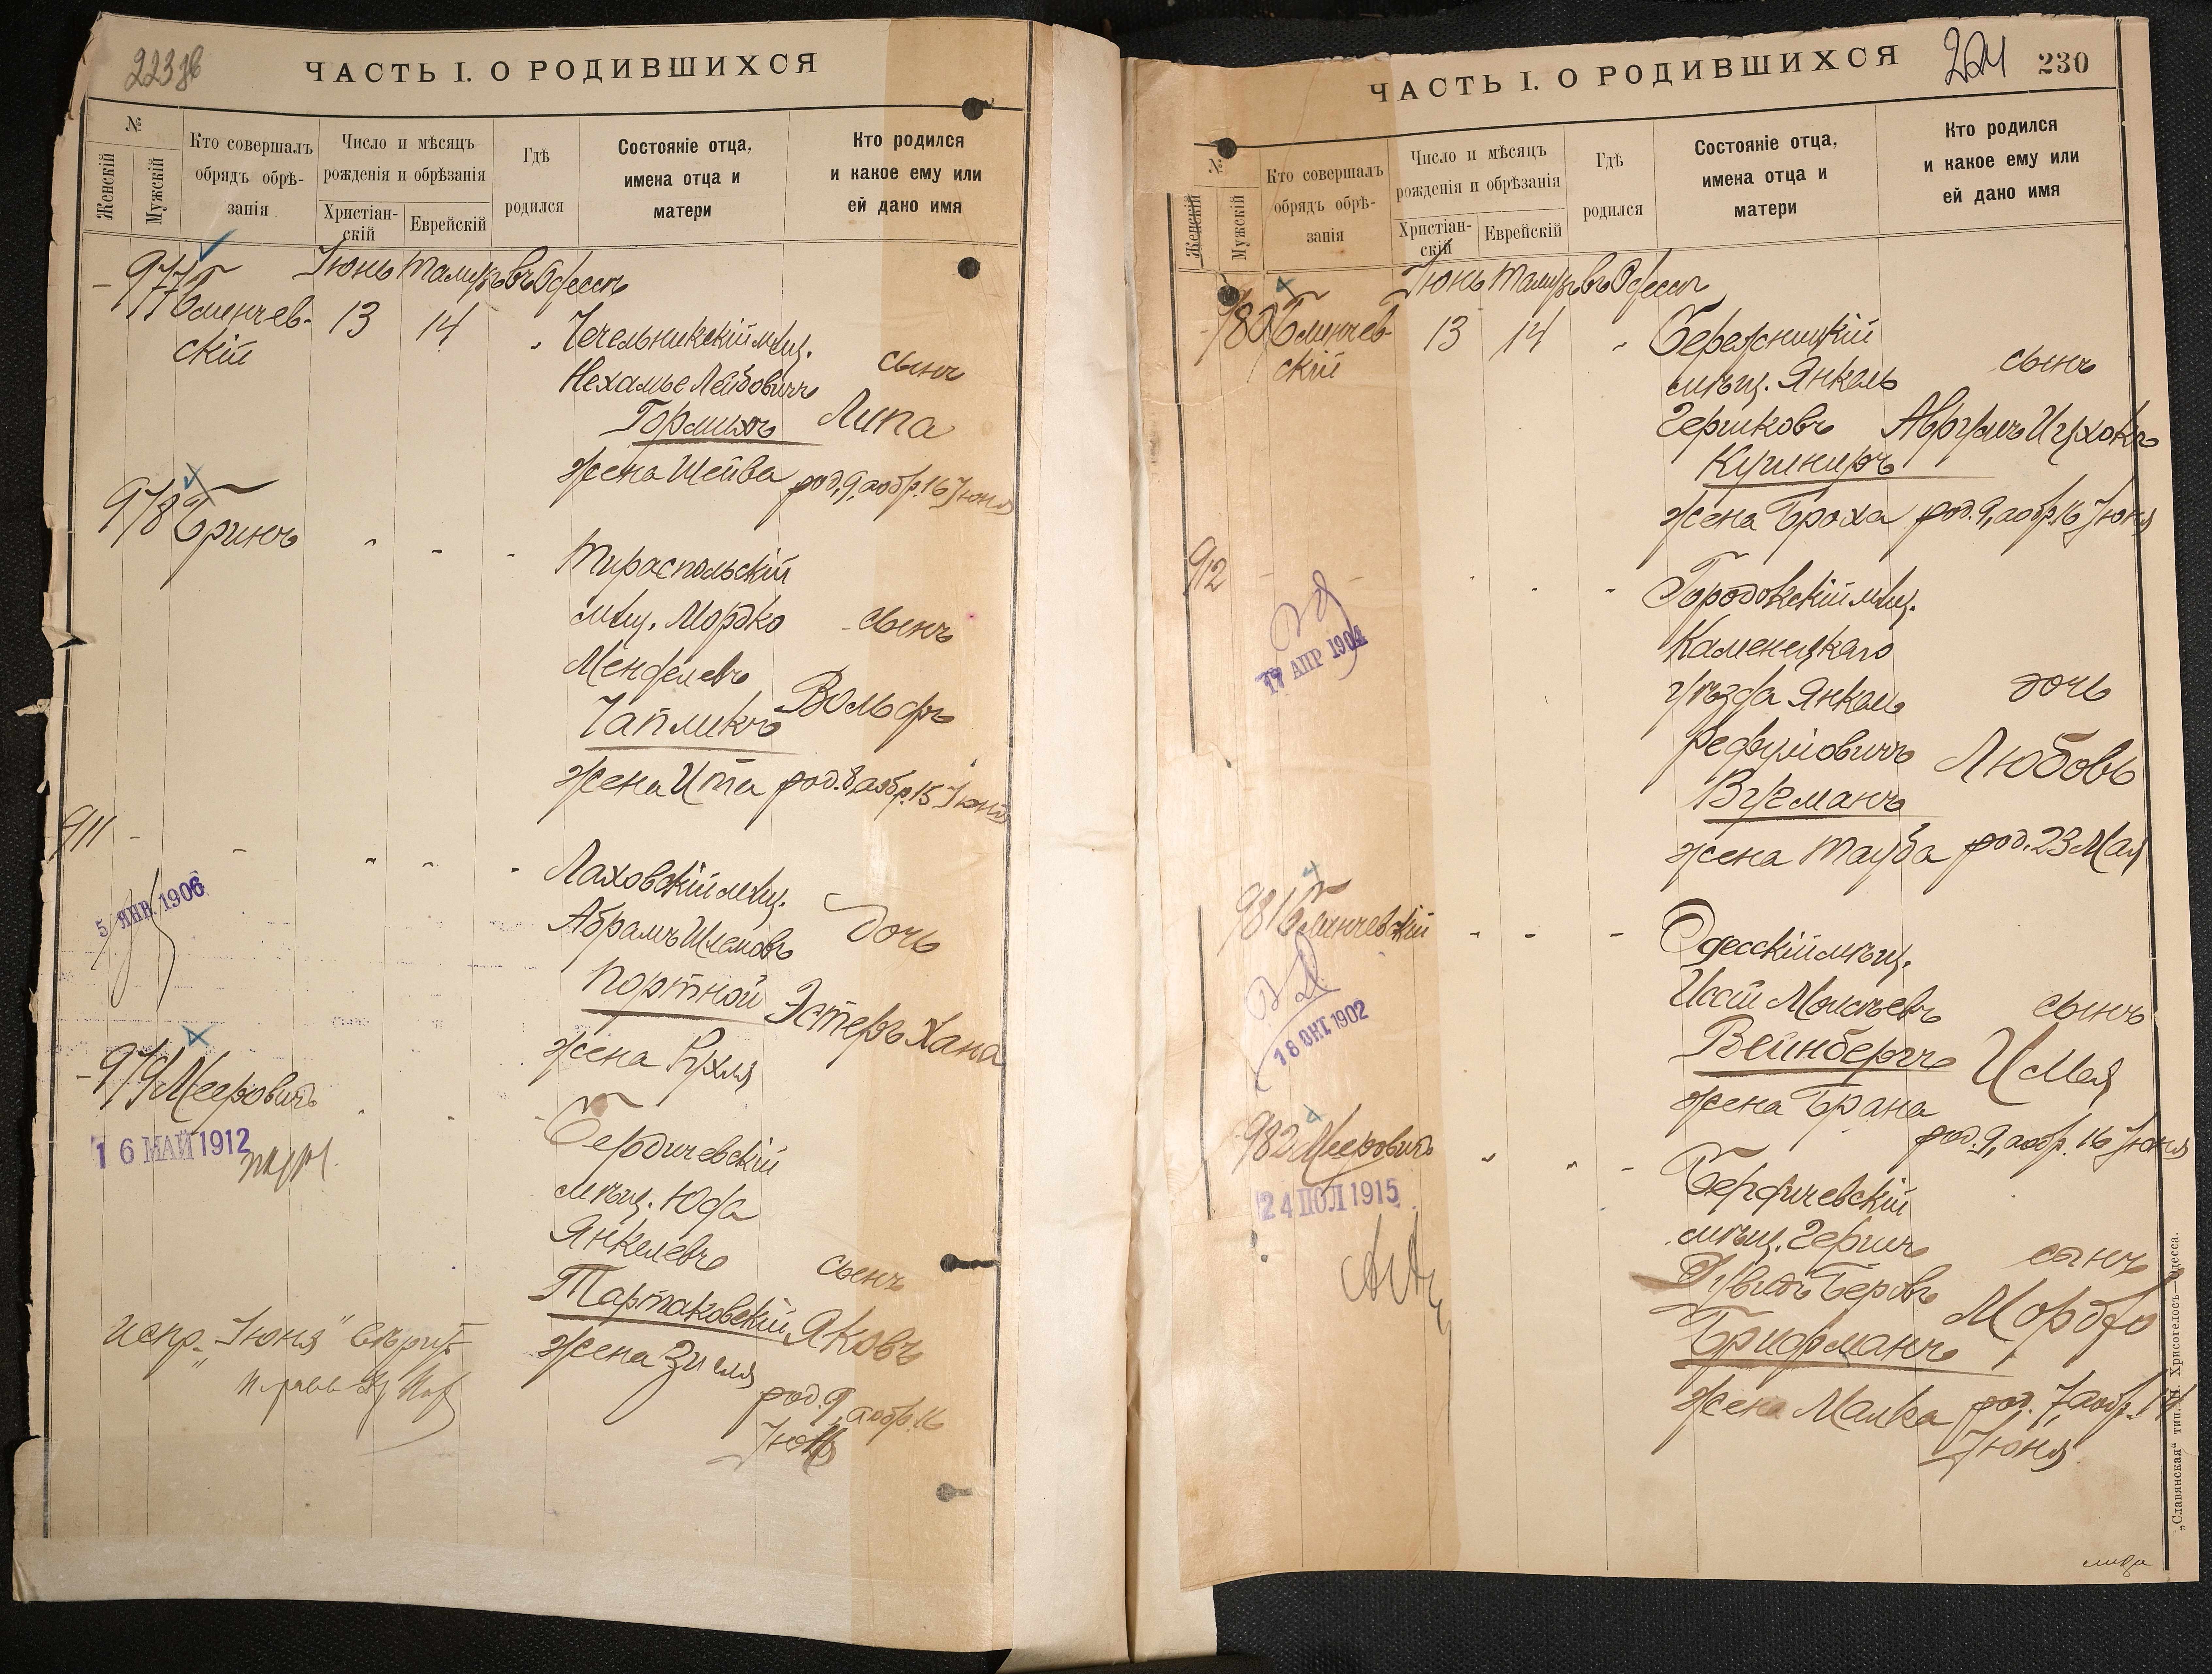 ЧАСТЬ I. О РОДИВШИХСЯ
№
Женскій
Мужскій
Кто совершалъ
обрядъ обрѣ-
занія
Число и мѣсяцъ
рожденія и обрѣзанія
Христіан-
скій
Еврейскій
Гдѣ
родился
Состояніе отца,
имена отца и
матери
Кто родился
и какое ему или
ей дано имя
Іюнь Тамузъ въ Одессѣ
977 Блинчев-
скій
13 14 "
Чечельникскій мѣщ.
Нехамье Лейбовичъ
жена Шейва
сынъ
Липа
род. 9, а обр. 16 Іюня
978 Бринъ
Тираспольскій
мѣщ. Мордко
Менделевъ
Чапликъ
жена Ита
сынъ
Вольфъ
род. 8 а обр. 15 Іюня
911
5 ЯНВ. 1906
Ляховскій мѣщ.
Абрамъ Шлемовъ
Портной
жена Рухля
дочь
Эстеръ Хана
979 Мееровичъ
16 МАЙ 1912
Бердичевскій
мѣщ. Юда
Янкелевъ
Тартаковскій
жена Зисля
сынъ
Яковъ
род. 9, а обр. 16
Іюня
испр. „Іюня" вѣрить
ЧАСТЬ I. О РОДИВШИХСЯ
230
№
Женскій
Мужскій
Кто совершалъ
обрядъ обрѣ-
занія
Число и мѣсяцъ
рожденія и обрѣзанія
Христіан-
скій
Еврейскій
Гдѣ
родился
Состояніе отца,
имена отца и
матери
Кто родился
и какое ему или
ей дано имя
Іюнь Тамузъ въ Одессѣ
980 Блинчев-
скій
13 14 "
Бережницкій
мѣщ. Янкель
Гершковъ
Кушниръ
жена Броха
сынъ
Аврумъ Ицхокъ
род. 9, а обр. 16 Іюня
912
17 АПР 1904
Городокскій мѣщ.
Каменецкаго
уѣзда Янкель
Вугманъ
жена Тауба
дочь
Любовь
род. 23 Мая
981 Блинчевскій
18 ОКТ 1902
Одесскій мѣщ.
Моисеевъ
Вейнбергъ
жена Брана
сынъ
род. 9, а обр. 16 Іюня
982 Мееровичъ
24 ИЮЛ 1915
Бердичевскій
мѣщ. Гершъ
Дувидъ Беровъ
жена Малка
сынъ
Мордко
род. 7, а обр. 14
Іюня
„Славянская" тип. Н. Хрисогелосъ—Одесса.